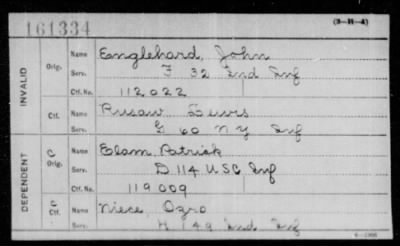 161334
(3-H-4)
INVALID
Orig.
Name Englehard, John
Serv. F 32 Ind Inf
Ctf. No. 112022
Ctf.
Name Rusaw Lewis
Serv. G 60 N Y Inf
DEPENDENT
C
Orig.
Name Elam Patrick
Serv. D 114 U S C Inf
Ctf. No. 119009
C
Ctf.
Name Niece, Ozro
Serv. H 149 Ind Inf